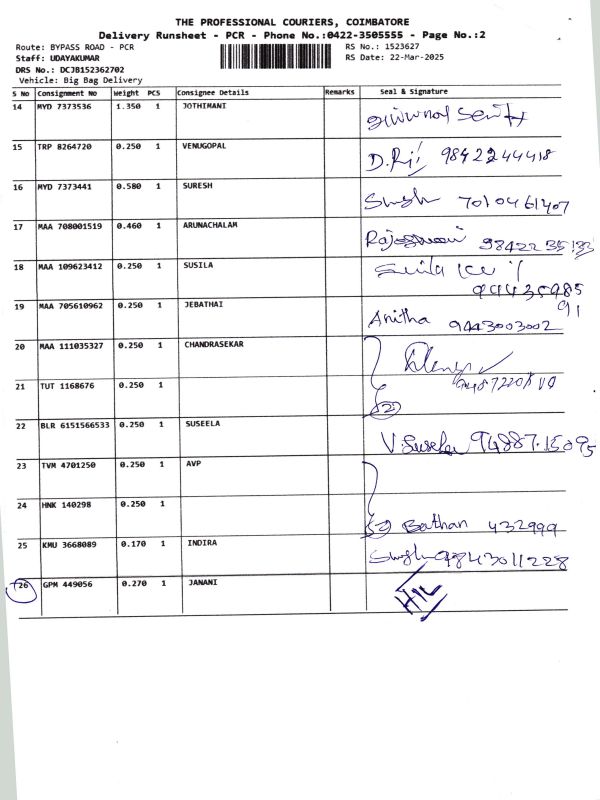 THE PROFESSIONAL COURIERS, COIMBATORE
Delivery Runsheet - PCR - Phone No.:0422-3505555 - Page No.:2
Route: BYPASS ROAD - PCR RS No.: 1523627
Staff: UDAYAKUMAR RS Date: 22-Mar-2025
DRS No.: DCJB152362702
Vehicle: Big Bag Delivery
S No Consignment No Weight PCS Consignee Details Remarks Seal & Signature
14 MYD 7373536 1.350 1 JOTHIMANI
15 TRP 8264720 0.250 1 VENUGOPAL 9842244418
16 MYD 7373441 0.580 1 SURESH 7010461407
17 MAA 708001519 0.460 1 ARUNACHALAM
18 MAA 109623412 0.250 1 SUSILA
19 MAA 705610962 0.250 1 JEBATHAI Anitha 9443003002
20 MAA 111035327 0.250 1 CHANDRASEKAR
21 TUT 1168676 0.250 1
(2)
22 BLR 6151566533 0.250 1 SUSEELA V.Suseela 94887.15095
23 TVM 4701250 0.250 1 AVP
24 HNK 140298 0.250 1 (2) Bathan 432999
25 KMU 3668089 0.170 1 INDIRA 9843011228
26 GPM 449056 0.270 1 JANANI H/L